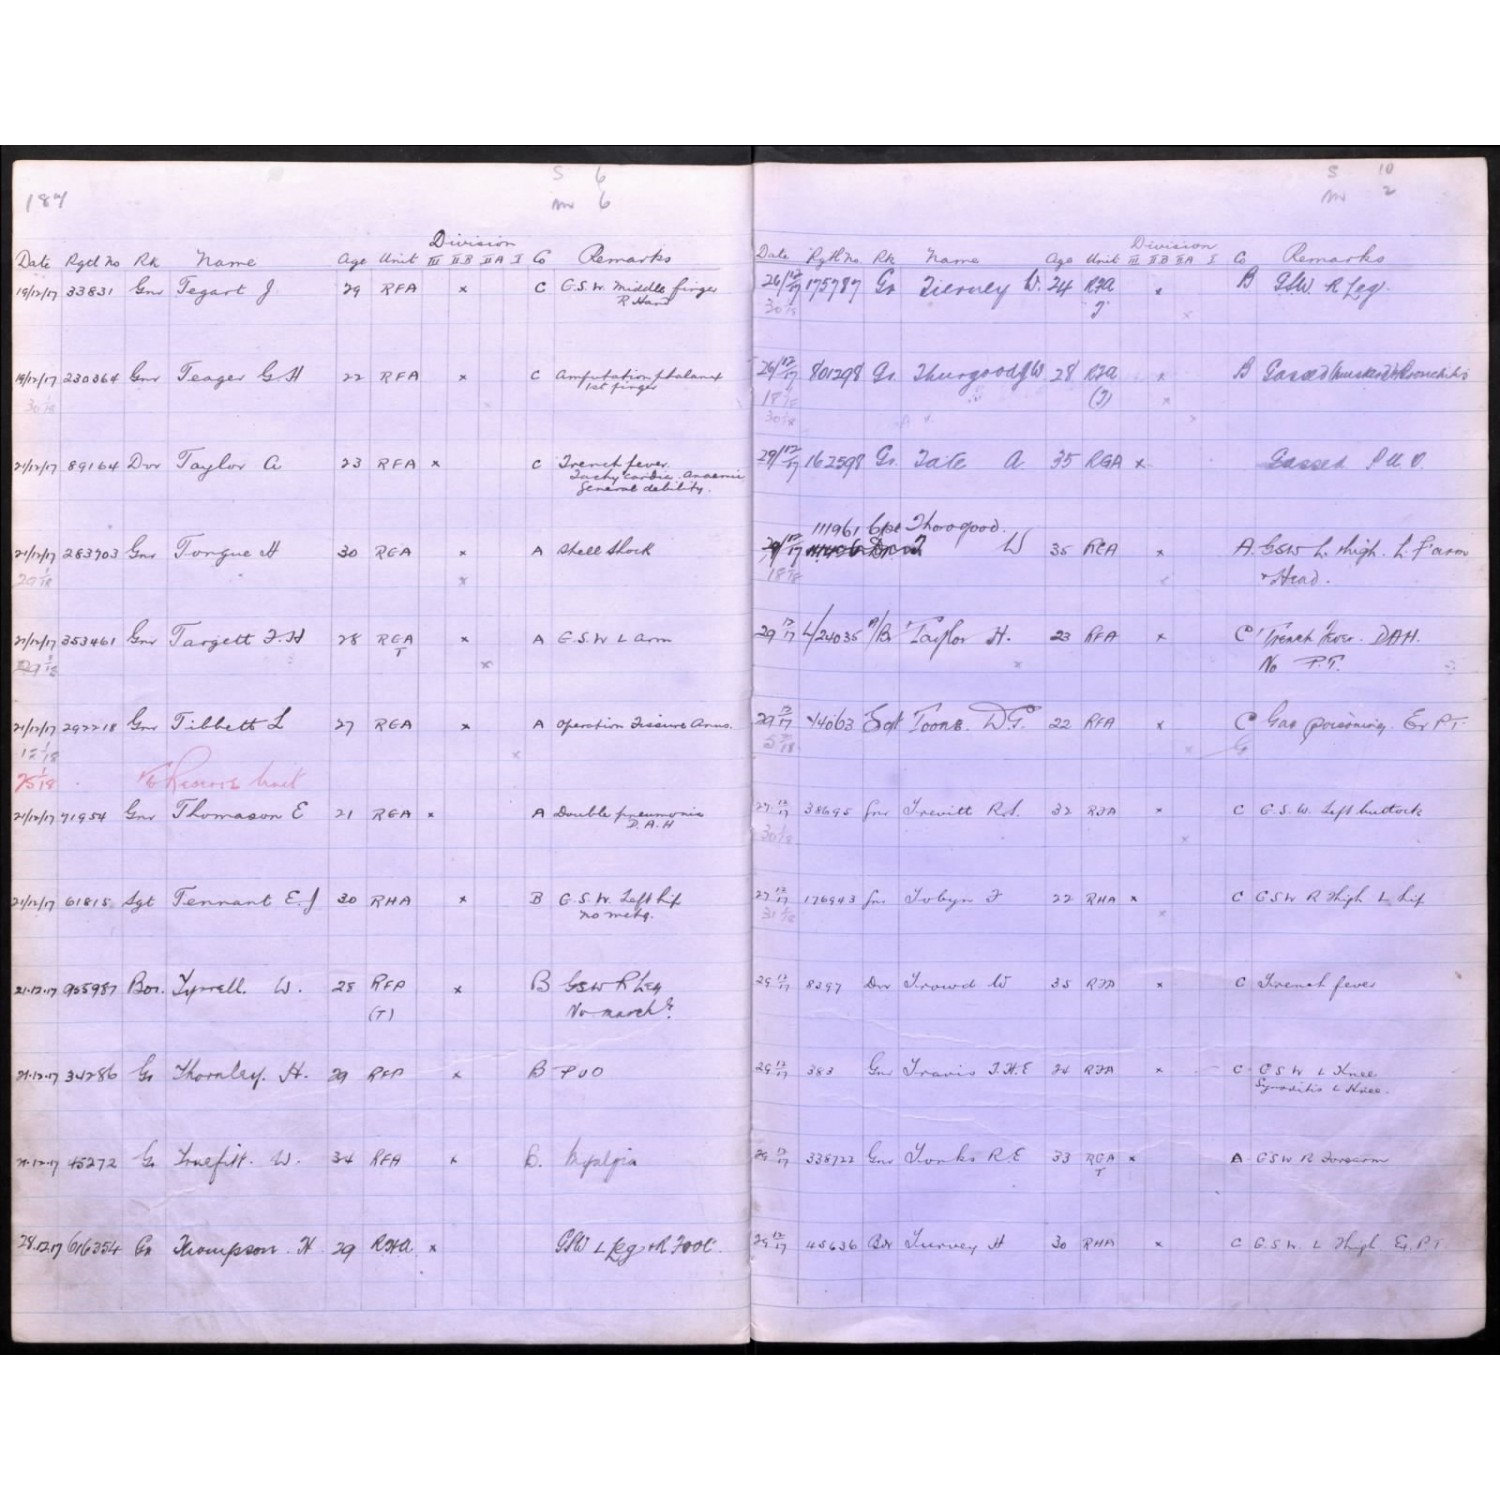 187
S 6
m 6
Division
Date Rgtl No Rk Name Age Unit III IIB IIA I Co Remarks
19/12/17 33831 Gnr Tegart J 29 RFA x C G.S.W. Middle finger
R Hand
19/12/17 230364 Gnr Teager G H 22 RFA x C Amputation phalanx
1st finger
30/1/18
21/12/17 89164 Dvr Taylor A 23 RFA x C Trench fever.
Tachycardia. Anaemia
General debility.
21/12/17 283903 Gnr Tongue H 30 RGA x A Shell Shock
20/1/18 x
21/12/17 353461 Gnr Targett F.H 28 RGA x A G.S.W L Arm
T
x
21/12/17 292218 Gnr Tibbett L 27 RGA x A Operation Fissure Anus.
12/1/18 x
25/1/18 To Reserve
21/12/17 71954 Gnr Thomason E 21 RGA x A Double pneumonia
D.A.H
21/12/17 61815 Sgt Tennant E.J 30 RHA x B G.S.W. Left hip
no mchg.
21.12.17 955987 Bor. Tyrrell. W. 28 RFA x B GSW R Leg
(T) No marchg.
21.12.17 34286 Gr Thornley. H. 29 RFA x B PUO
21.12.17 45272 Gr Truefitt. W. 34 RFA x B. Myalgia
28.12.17 616354 Gr Thompson. H 29 RHA x GSW L Leg + R Foot.
S 10
m 2
Division
Date Rgtl No. Rk Name Age Unit III IIB IIA I Co Remarks
26/12/17 175787 Gr Tierney W. 24 RFA x B GSW. R Leg.
30/1/18 T x
26/12/17 801298 Gr. Thurgood J W 28 RFA x B Gassed (Mustard) + Bronchitis
18/1/18 (T) x
30/1/18 x
29/12/17 162598 Gr. Tate A. 35 RGA x Gassed P.U.O.
111961 Cpl Thorogood.
29/12/17 W 35 RGA x A. GSW L. thigh. L. F'arm
18/1/18 x + Head.
29 12/17 L/24035 A/Br Taylor H. 23 RFA x C Trench Fever. DAH.
x No P.T.
29 12/17 44063 Sgt Toons. D G. 22 RFA x C Gas poisoning. Ex PT.
x G
27 12/17 38695 Gnr Trevitt R.S. 32 RFA x C G.S.W. Left buttock
30/1/18 x
27 12/17 176943 Gnr Tobyn F 22 RHA x C GSW R Thigh L hip
31/1/18 x
29 12/17 8297 Dvr Trowd W 35 RFA x C Trench fever
29 12/17 383 Gnr Travis T.H.E 24 RFA x C GSW L Knee
Synovitis L Knee.
29 12/17 338722 Gnr Tonks R E 33 RGA x A GSW R Forearm
T
29 12/17 45636 Bdr Turvey H 30 RHA x C G.S.W. L Thigh Ex. P.T